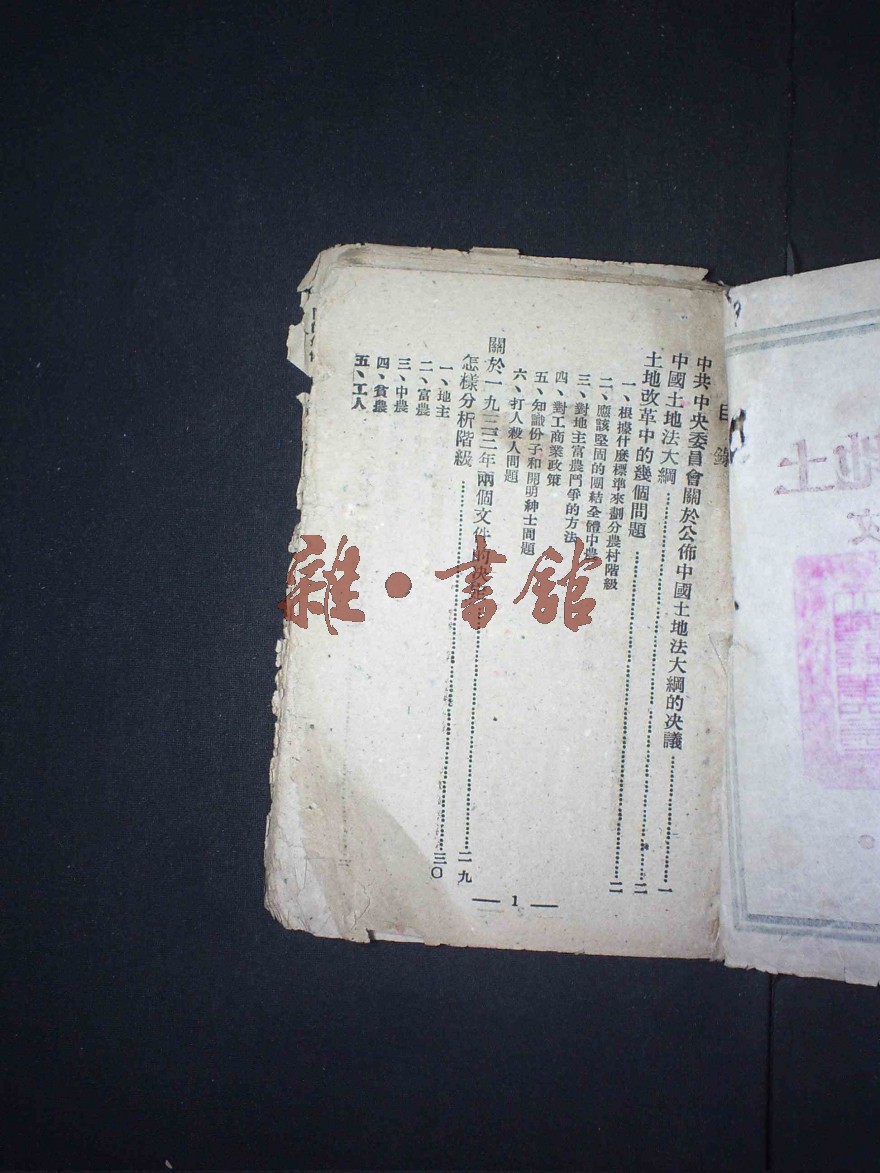 目錄
中共中央委員會關於公佈中國土地法大綱的决議……一
中國土地法大綱……二
土地改革中的幾個問題……二
一、根據什麼標準來劃分農村階級
二、應該堅固的團結全體中農
三、對地主富農鬥爭的方法
四、對工商業政策
五、知識份子和開明紳士問題
六、打人殺人問題
關於一九三三年兩個文件的……二九
怎樣分析階級……三〇
一、地主
二、富農
三、中農
四、貧農
五、工人
— 1 —
雜·書館
土地